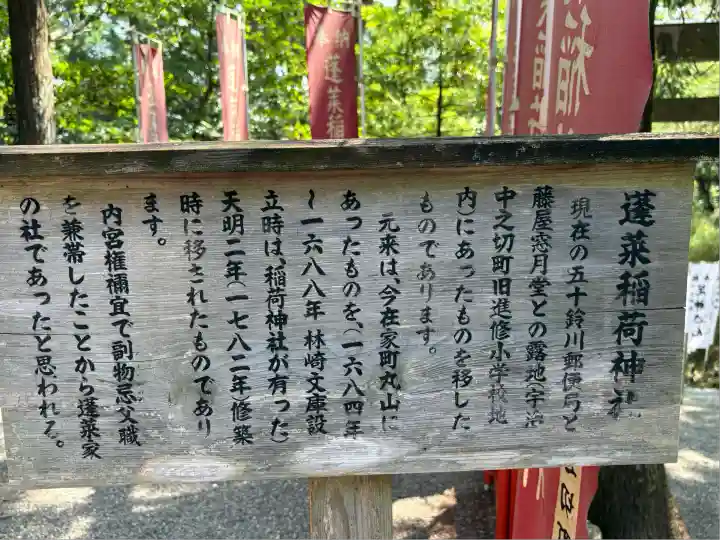 蓬莱稲荷神社
現在の五十鈴川郵便局と
藤屋窓月堂との露地(宇治
中之切町旧進修小学校地
内)にあったものを移した
ものであります。
元来は、今在家町丸山に
あったものを、(一六八四年
~一六八八年 林崎文庫設
立時は、稲荷神社が有った)
天明二年(一七八二年)修築
時に移されたものであり
ます。
内宮権禰宜で副物忌父職
を兼帯したことから蓬莱家
の社であったと思われる。
奉納 蓬莱稲